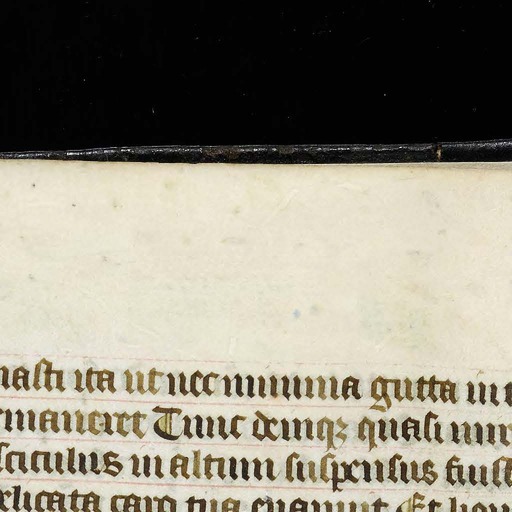 nasti ita ut nec minima gutta in
maneret Tunc demqꝫ quasi mir
sciculus in altum suspensus fuist
elicata caro tua euanuit Et